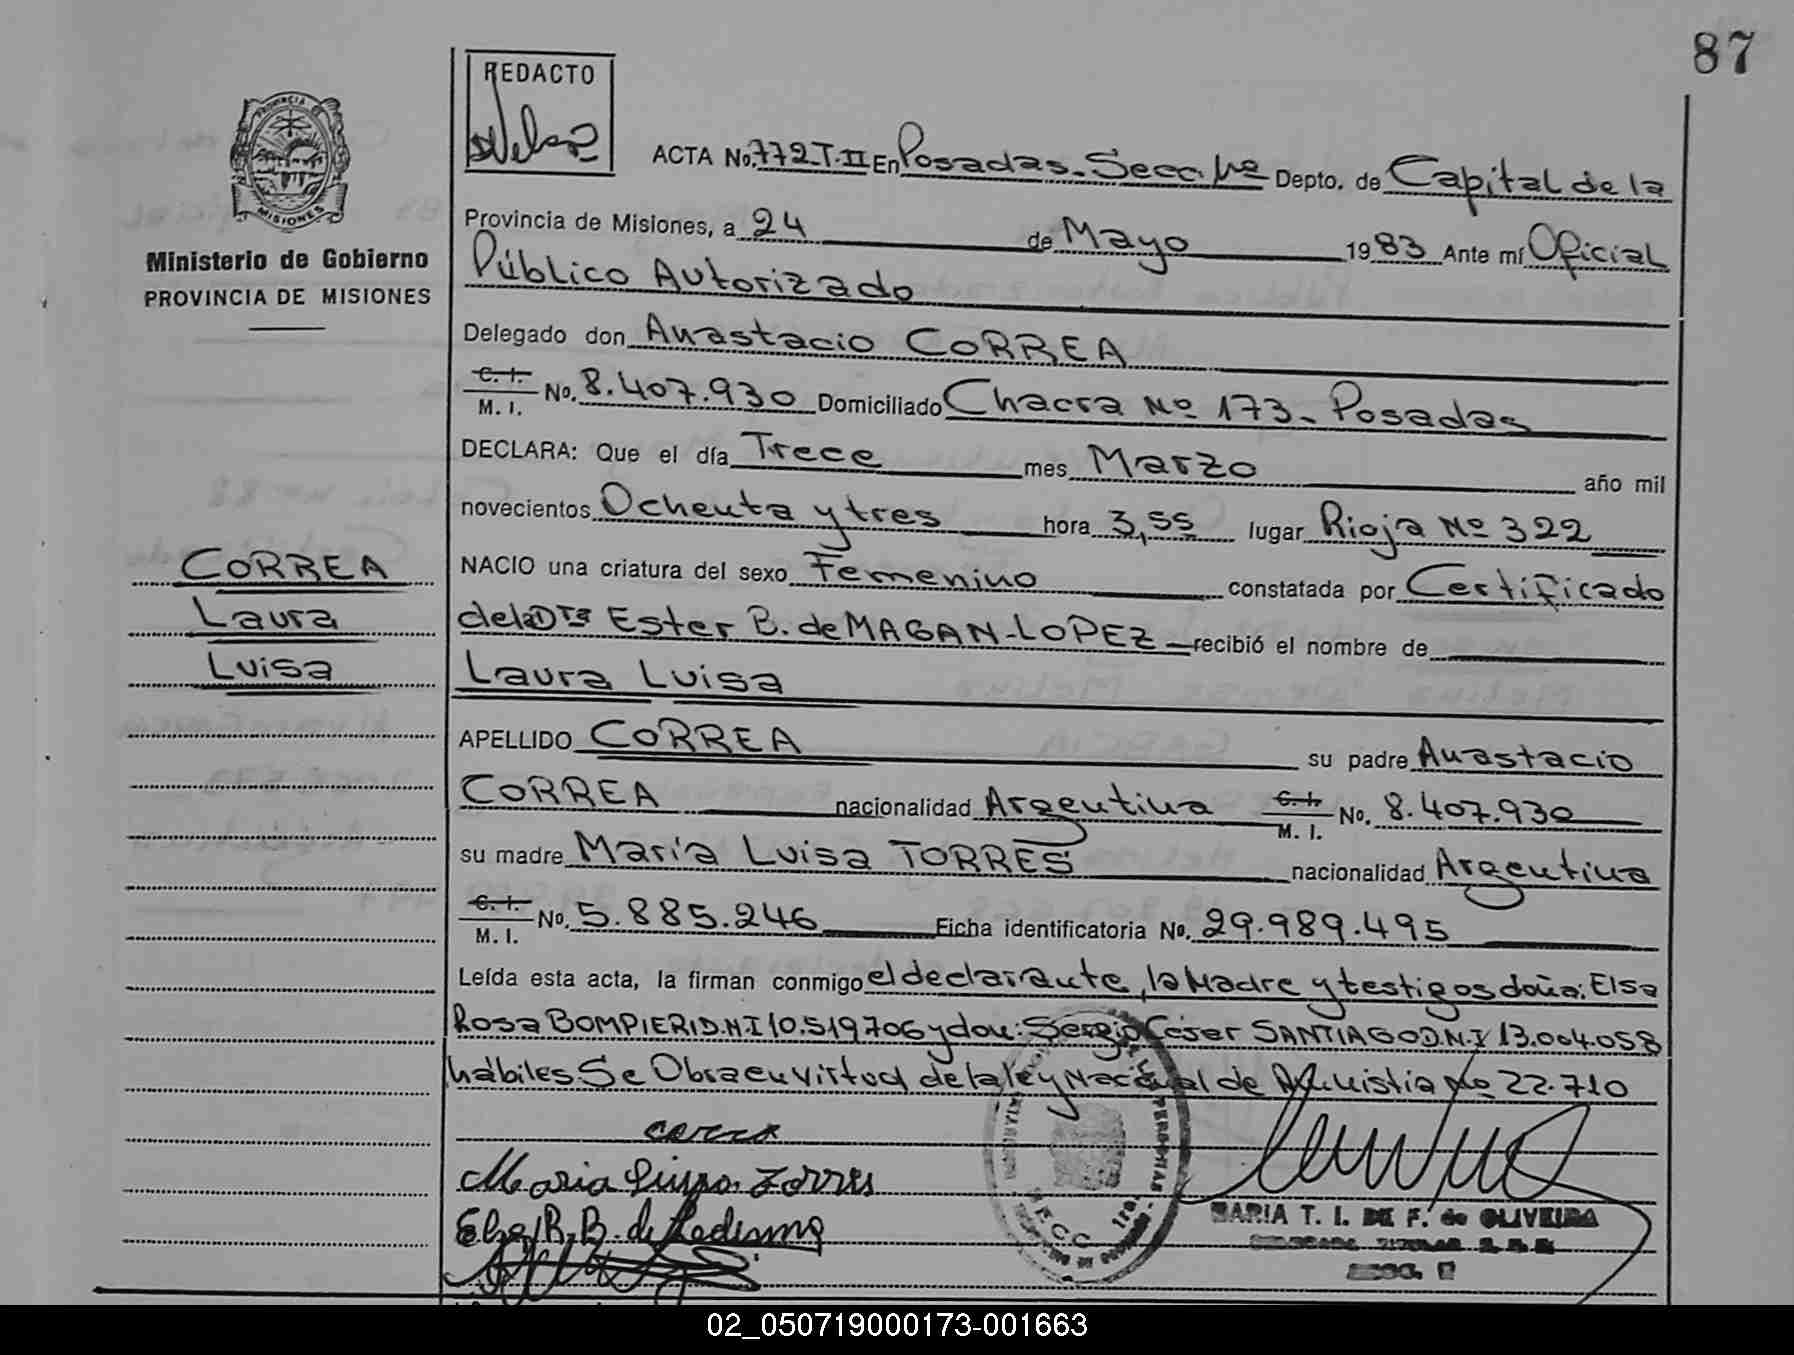 87
REDACTO
PROVINCIA
MISIONES
Ministerio de Gobierno
PROVINCIA DE MISIONES
CORREA
Laura
Luisa
ACTA No. 772 T. II En Posadas - Secc. 1ra Depto. de Capital de la
Provincia de Misiones, a 24 de Mayo 1983 Ante mí Oficial
Público Autorizado
Delegado don Anastacio CORREA
C. I. / M. I. No. 8.407.930 Domiciliado Chacra Nº 173 - Posadas
DECLARA: Que el día Trece mes Marzo año mil
novecientos Ochenta y tres hora 3,55 lugar Rioja Nº 322
NACIO una criatura del sexo Femenino constatada por Certificado
de la Dra Ester B. de MAGAN-LOPEZ recibió el nombre de
Laura Luisa
APELLIDO CORREA su padre Anastacio
CORREA nacionalidad Argentina C. I. / M. I. No. 8.407.930
su madre María Luisa TORRES nacionalidad Argentina
C. I. / M. I. No. 5.885.246 Ficha identificatoria No. 29.989.495
Leída esta acta, la firman conmigo el declarante, la Madre y testigos doña: Elsa
Rosa BOMPIERI D.N.I 10.519706 y don: Sergio César SANTIAGO D.N.I 13.004.058
hábiles Se Obra en virtud de la ley Nacional de Amnistia Nº 22.710
correa
Maria Luisa Torres
Elsa R. B. de Ledesma
MARIA T. I. DE F. de OLIVEIRA
02_050719000173-001663